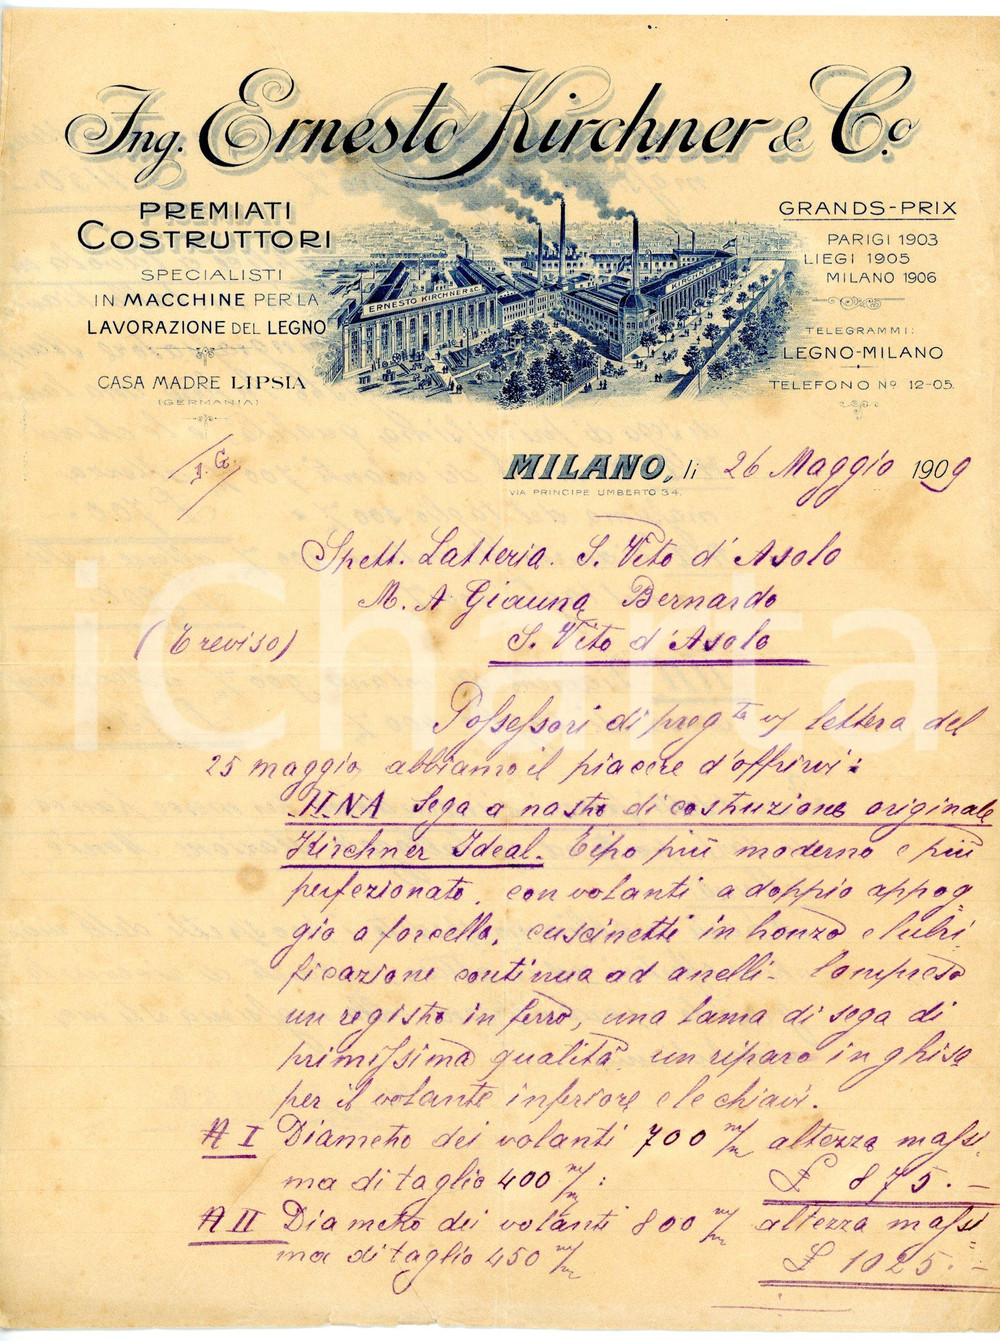 Ing. Ernesto Kirchner & Co.
PREMIATI
COSTRUTTORI
SPECIALISTI
IN MACCHINE PER LA
LAVORAZIONE DEL LEGNO
CASA MADRE LIPSIA
(GERMANIA)
ERNESTO KIRCHNER & C.
KIRCHNER
GRANDS-PRIX
PARIGI 1903
LIEGI 1905
MILANO 1906
TELEGRAMMI:
LEGNO-MILANO
TELEFONO No 12-05.
I.G.
MILANO, li 26 Maggio 1909
VIA PRINCIPE UMBERTO 34.
Spett. Latteria S. Vito d'Asolo
M. A Giauna Bernardo
(Treviso) S. Vito d'Asolo
Possessori di preg.ta vs lettera del
25 maggio, abbiamo il piacere d'offrirvi:
UNA Sega a nastro di costruzione originale
Kirchner Ideal. Tipo più moderno e più
perfezionato, con volanti a doppio appog-
gio a forcella, cuscinetti in bronzo e lubri-
ficazione continua ad anelli. Compreso
un registro in ferro, una lama di sega di
primissima qualità, un riparo in ghisa
per il volante inferiore e le chiavi.
A I Diametro dei volanti 700 m/m altezza massi-
ma di taglio 400 m/m: £ 875.-
A II Diametro dei volanti 800 m/m altezza massi-
ma di taglio 450 m/m £ 1025.-
iCharta